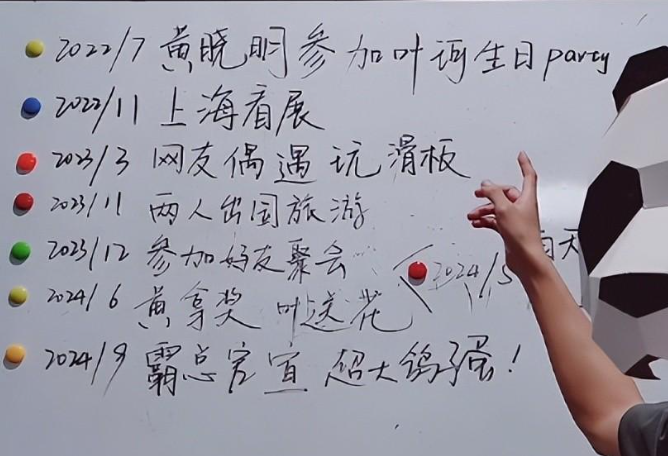 2022/7 黄晓明参加叶珂生日party
2022/11 上海看展
2023/3 网友偶遇 玩滑板
2023/11 两人出国旅游
2023/12 参加好友聚会
2024/5 雨天
2024/6 黄拿奖 叶送花
2024/9 霸总官宣 超大鸽子蛋!